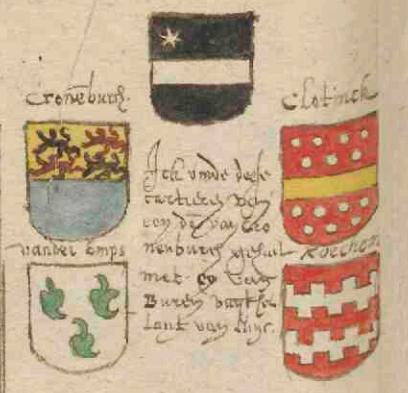 Cronēburch.
Clotinck
Ick vinde dese
cartieren van
een dē van Cro
nenburch gehuł
met ey van
Buren vuyt he
lant van
vander Emps
Roechen